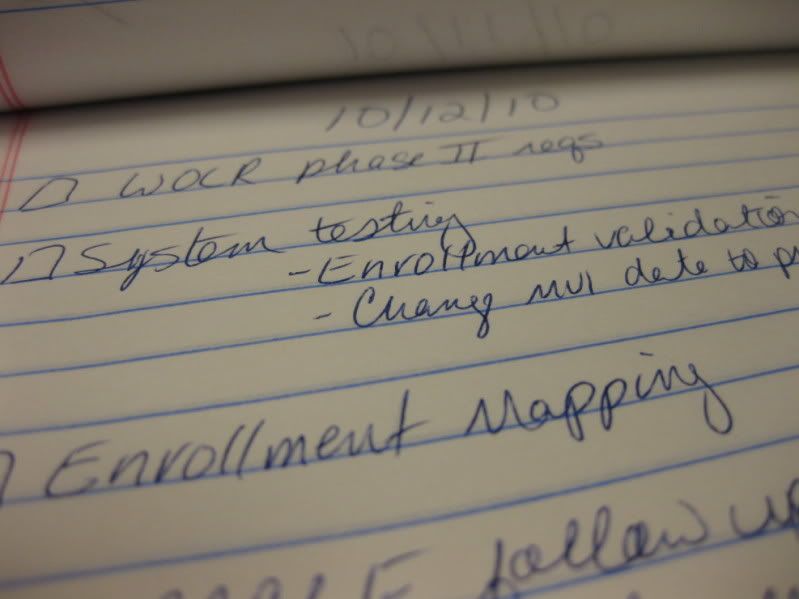 10/12/10
WOCR phase II reqs
System testing
- Enrollment validation
- Chang MVI date to
Enrollment Mapping
follow up